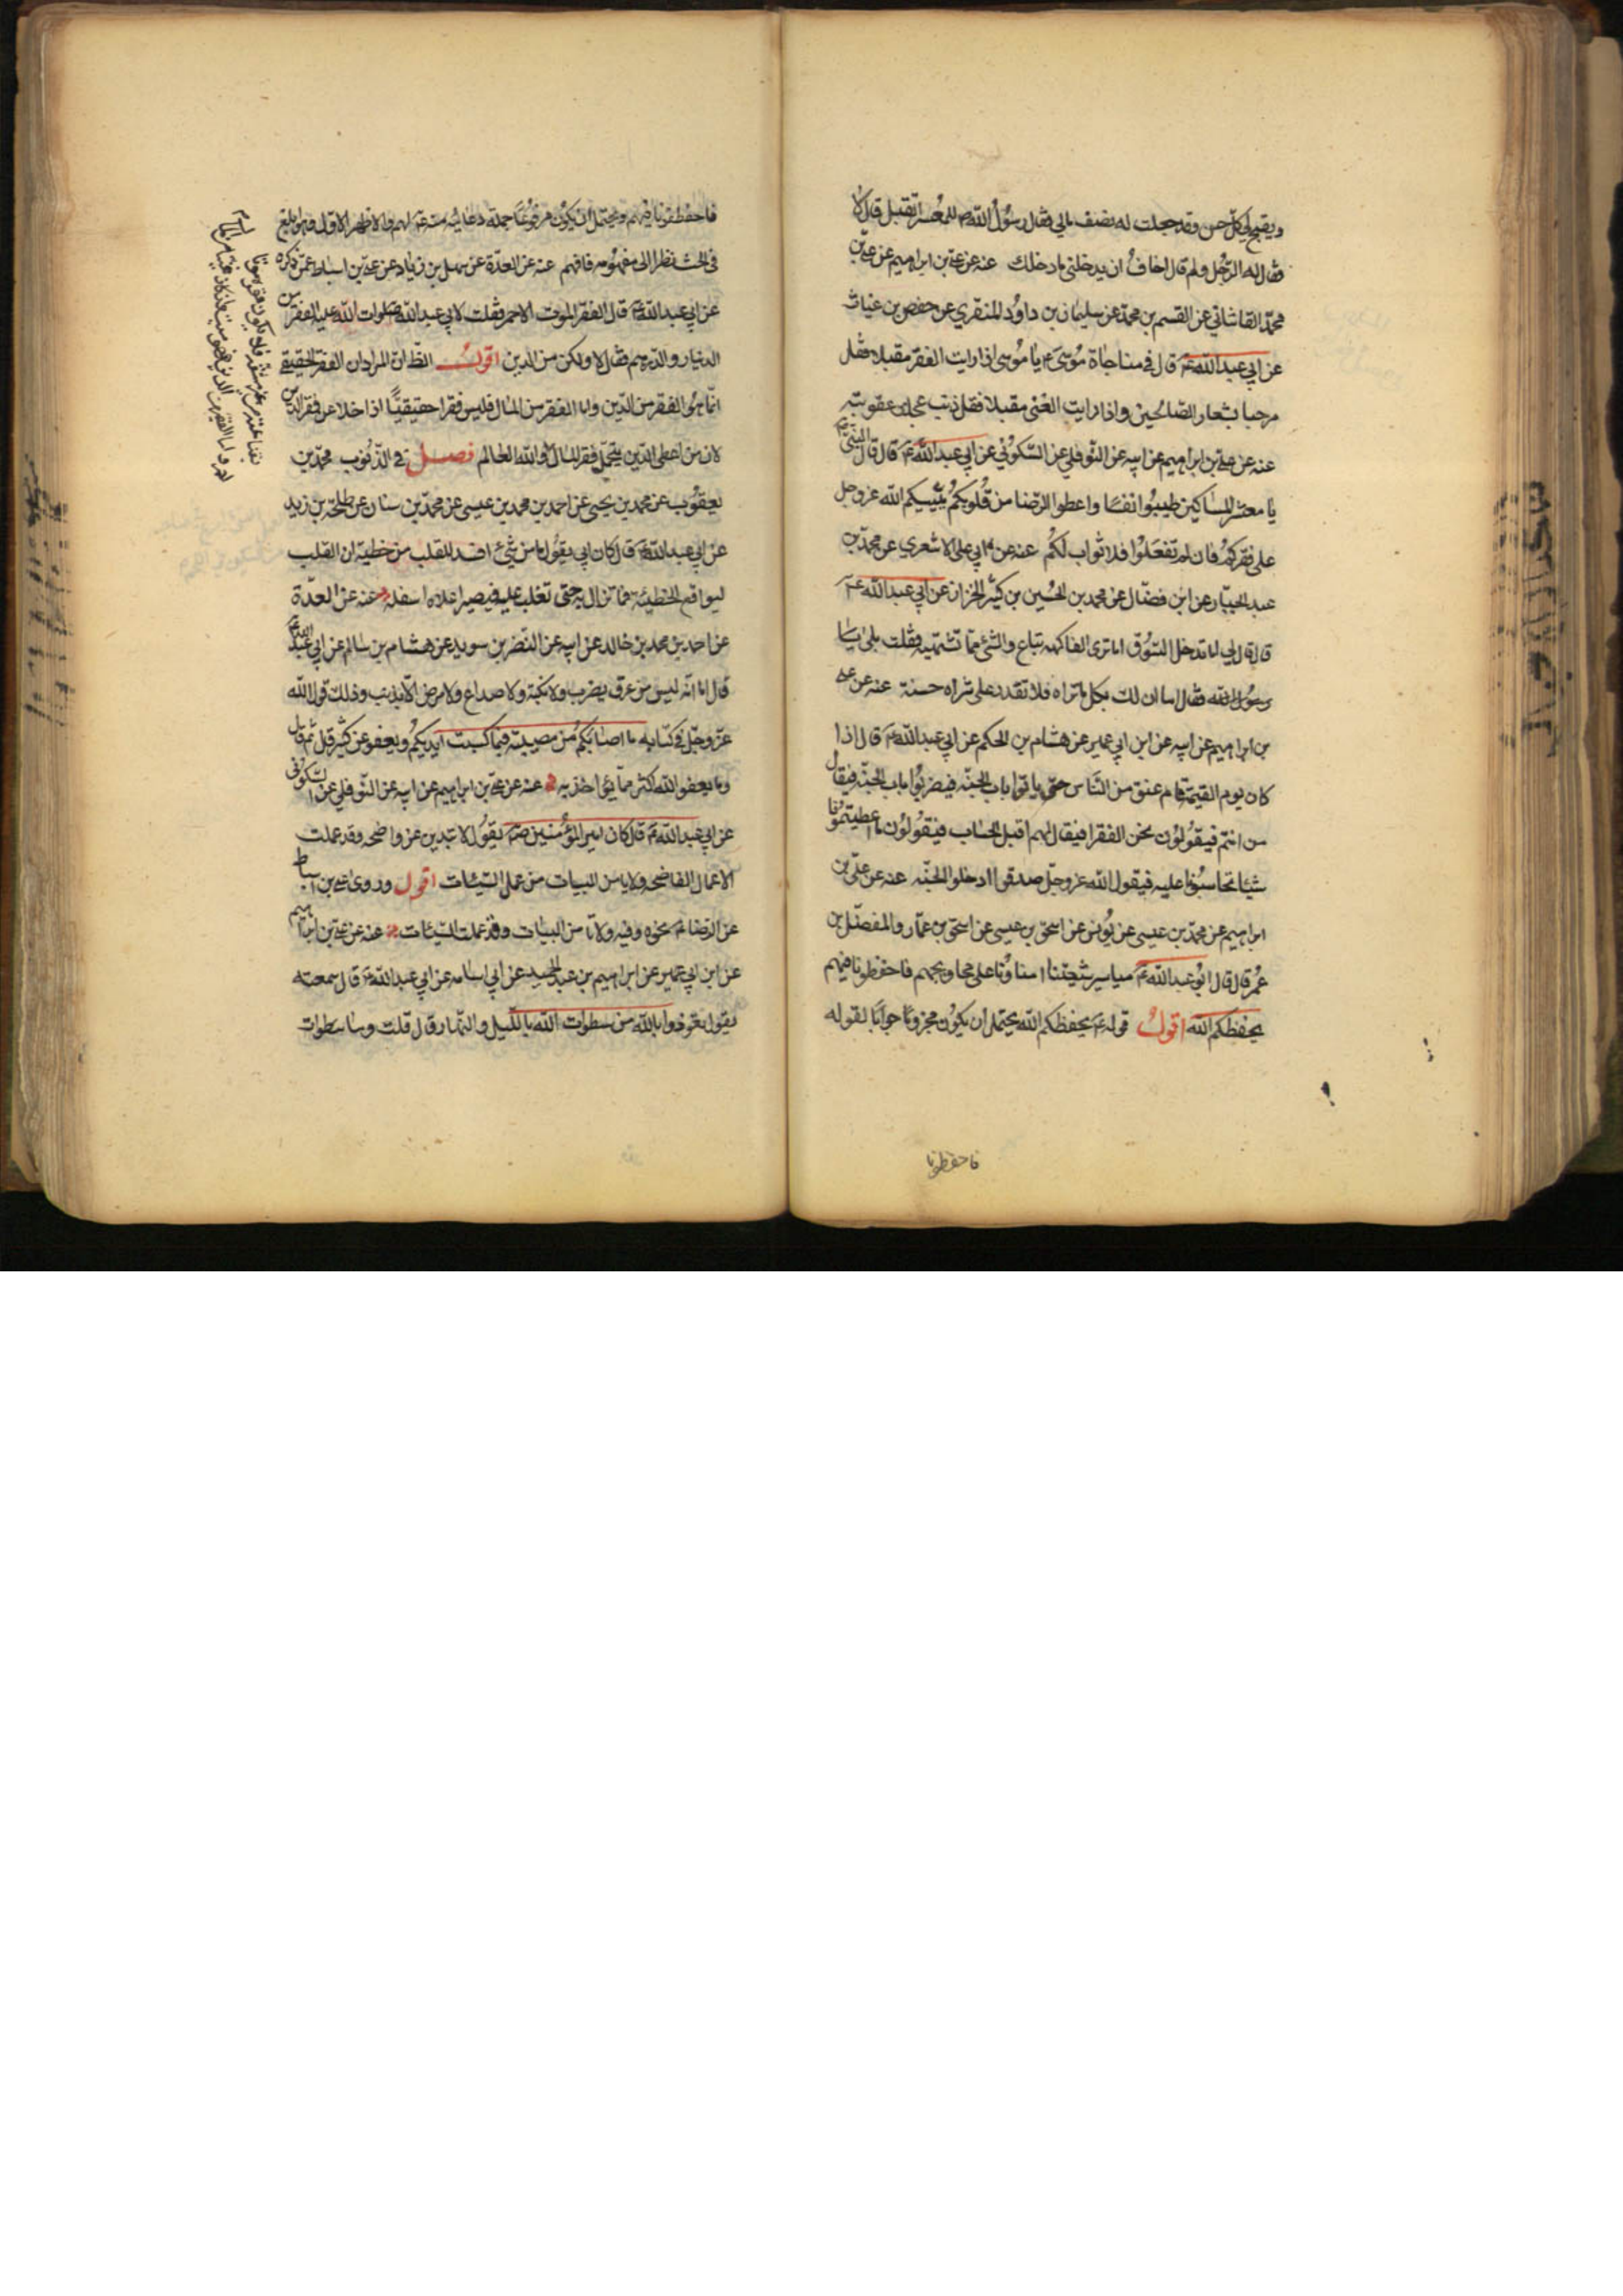 ويقبح لي كل حسن وقد جعلت له نصف مالي فقال رسول الله ص للمعسر اتقبل قال لا
فقال له الرجل ولم قال اخاف ان يدخلني ما دخلك عنه عن علي بن ابراهيم عن علي بن
محمد القاشاني عن القسم بن محمد عن سليمان بن داود المنقري عن حفص بن غياث
عن ابي عبد الله ع قال في مناجاة موسى ع يا موسى اذا رايت الفقر مقبلا فقل
مرحبا بشعار الصالحين واذا رايت الغنى مقبلا فقل ذنب عجلت عقوبته
عنه عن علي بن ابراهيم عن ابيه عن النوفلي عن السكوني عن ابي عبد الله ع قال قال النبي ص
يا معشر المساكين طيبوا انفسا واعطوا الرضا من قلوبكم يثيبكم الله عز وجل
على فقركم فان لم تفعلوا فلا ثواب لكم عنه عن ابي علي الاشعري عن محمد بن
عبد الجبار عن ابن فضال عن محمد بن الحسين بن كثير الخزاز عن ابي عبد الله ع
قال قال لي اما تدخل السوق اما ترى الفاكهة تباع والشئ مما تشتهيه فقلت بلى يا
رسول الله فقال اما ان لك بكل ما تراه فلا تقدر على شراه حسنة عنه عن علي
بن ابراهيم عن ابيه عن ابن ابي عمير عن هشام بن الحكم عن ابي عبد الله ع قال اذا
كان يوم القيمة قام عنق من الناس حتى ياتوا باب الجنة فيضربوا باب الجنة فيقال
من انتم فيقولون نحن الفقرا فيقال لهم اقبل الحساب فيقولون ما اعطيتمونا
شيئا تحاسبونا عليه فيقول الله عز وجل صدقوا ادخلوا الجنة عنه عن علي بن
ابراهيم عن محمد بن عيسى عن يونس عن اسحق بن عيسى عن اسحق بن عمار والمفضل بن
عمر قال قال ابو عبد الله ع مياسير شيعتنا امناونا على محاويجهم فاحفظونا فيهم
يحفظكم الله اقول قوله ع يحفظكم الله يحتمل ان يكون مجزوما جوابا لقوله
فاحفظونا
فاحفظونا فيهم ويحتمل ان يكون مرفوعا جملة دعائية منه ع لهم والاظهر الاول فهو ابلغ
في الحث نظرا الى مفهومه فافهم عنه عن العدة عن سهل بن زياد عن علي بن اسباط عمن ذكره
عن ابي عبد الله ع قال الفقر الموت الاحمر فقلت لابي عبد الله صلوات الله عليه الفقر من
الدينار والدرهم فقال لا ولكن من الدين اقول الظ ان المراد ان الفقر الحقيقي
انما هو الفقر من الدين واما الفقر من المال فليس فقرا حقيقيا اذا خلا عن فقر الدين
لان من اعطي الدين يتحمل فقر المال والله العالم فصل في الذنوب محمد بن
يعقوب عن محمد بن يحيى عن احمد بن محمد بن عيسى عن محمد بن سنان عن طلحة بن زيد
عن ابي عبد الله ع قال كان ابي يقول ما من شئ افسد للقلب من خطيئة ان القلب
ليواقع الخطيئة فما تزال به حتى تغلب عليه فيصير اعلاه اسفله عنه عن العدة
عن احمد بن محمد بن خالد عن ابيه عن النضر بن سويد عن هشام بن سالم عن ابي عبد الله ع
قال اما انه ليس من عرق يضرب ولا نكبة ولا صداع ولا مرض الا بذنب وذلك قول الله
عز وجل في كتابه ما اصابكم من مصيبة فبما كسبت ايديكم ويعفو عن كثير قال ثم قال
وما يعفو الله اكثر مما يؤاخذ به عنه عن علي بن ابراهيم عن ابيه عن النوفلي عن السكوني
عن ابي عبد الله ع قال كان امير المؤمنين ص يقول لا تبدين عن واضحه وقد عملت
الاعمال الفاضحه ولا يامن البيات من عمل السيئات اقول وروى علي بن اسباط
عن الرضا ع نحوه وفيه ولا تامن البيات وقد عملت السيئات عنه عن علي بن ابراهيم
عن ابن ابي عمير عن ابراهيم بن عبد الحميد عن ابي اسامه عن ابي عبد الله ع قال سمعته
يقول تعوذوا بالله من سطوات الله بالليل والنهار قال قلت وما سطوات